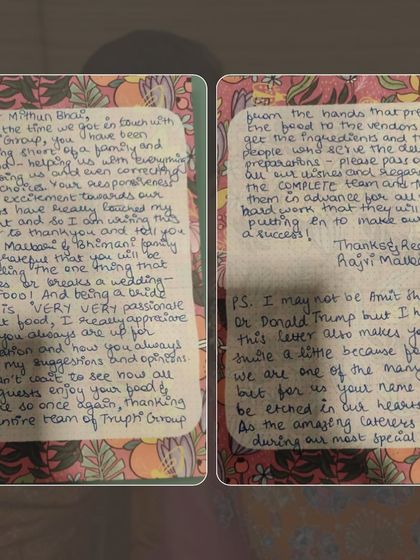 Mithun Bhai,
the time we got in touch with
Group, you have been
ing short of a family and
- helping us with everything
ing us and even correcting
choices. Your responsiveness
excitement towards our
s have really touched my
t and so I am writing this
to thankyou and tell you
Malbari & Bhimani family
grateful that you will be
ling the one thing that
es or breaks a wedding-
FOOD! And being a bride
is VERY VERY passionate
t food, I really appreciate
you always are up for
ation and how you always
my suggestions and opinions.
an't want to see how all
guests enjoy your food &
e so once again, thanking
entire team of Trupti Group
from the hands that pre
the food to the vendors
get the ingredients and t
people who serve the de
preparations - please pass
all our wishes and regar
the COMPLETE team and
them in advance for all
hard work that they wil
putting in to make our
a success!
Thanks & Re
Rajvi Malba
PS. I may not be Amit Sh
or Donald Trump but I h
this letter also makes y
smile a little because f
we are one of the man
but for us your name
be etched in our hearts
As the amazing caterers
during our most special